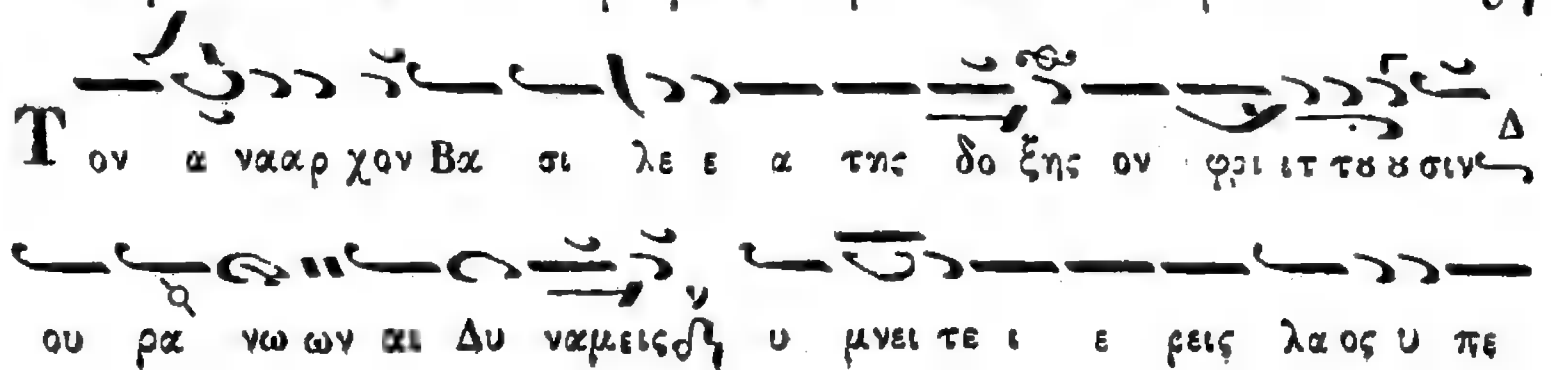 Τ ον α νααρ χον Βα σι λε ε α της δο ξης ον φρι ιτ τȣ ȣ σιν Δ
ου ρα νω ων αι Δυ ναμεις ν υ μνει τε ι ε ρεις λα ος υ πε